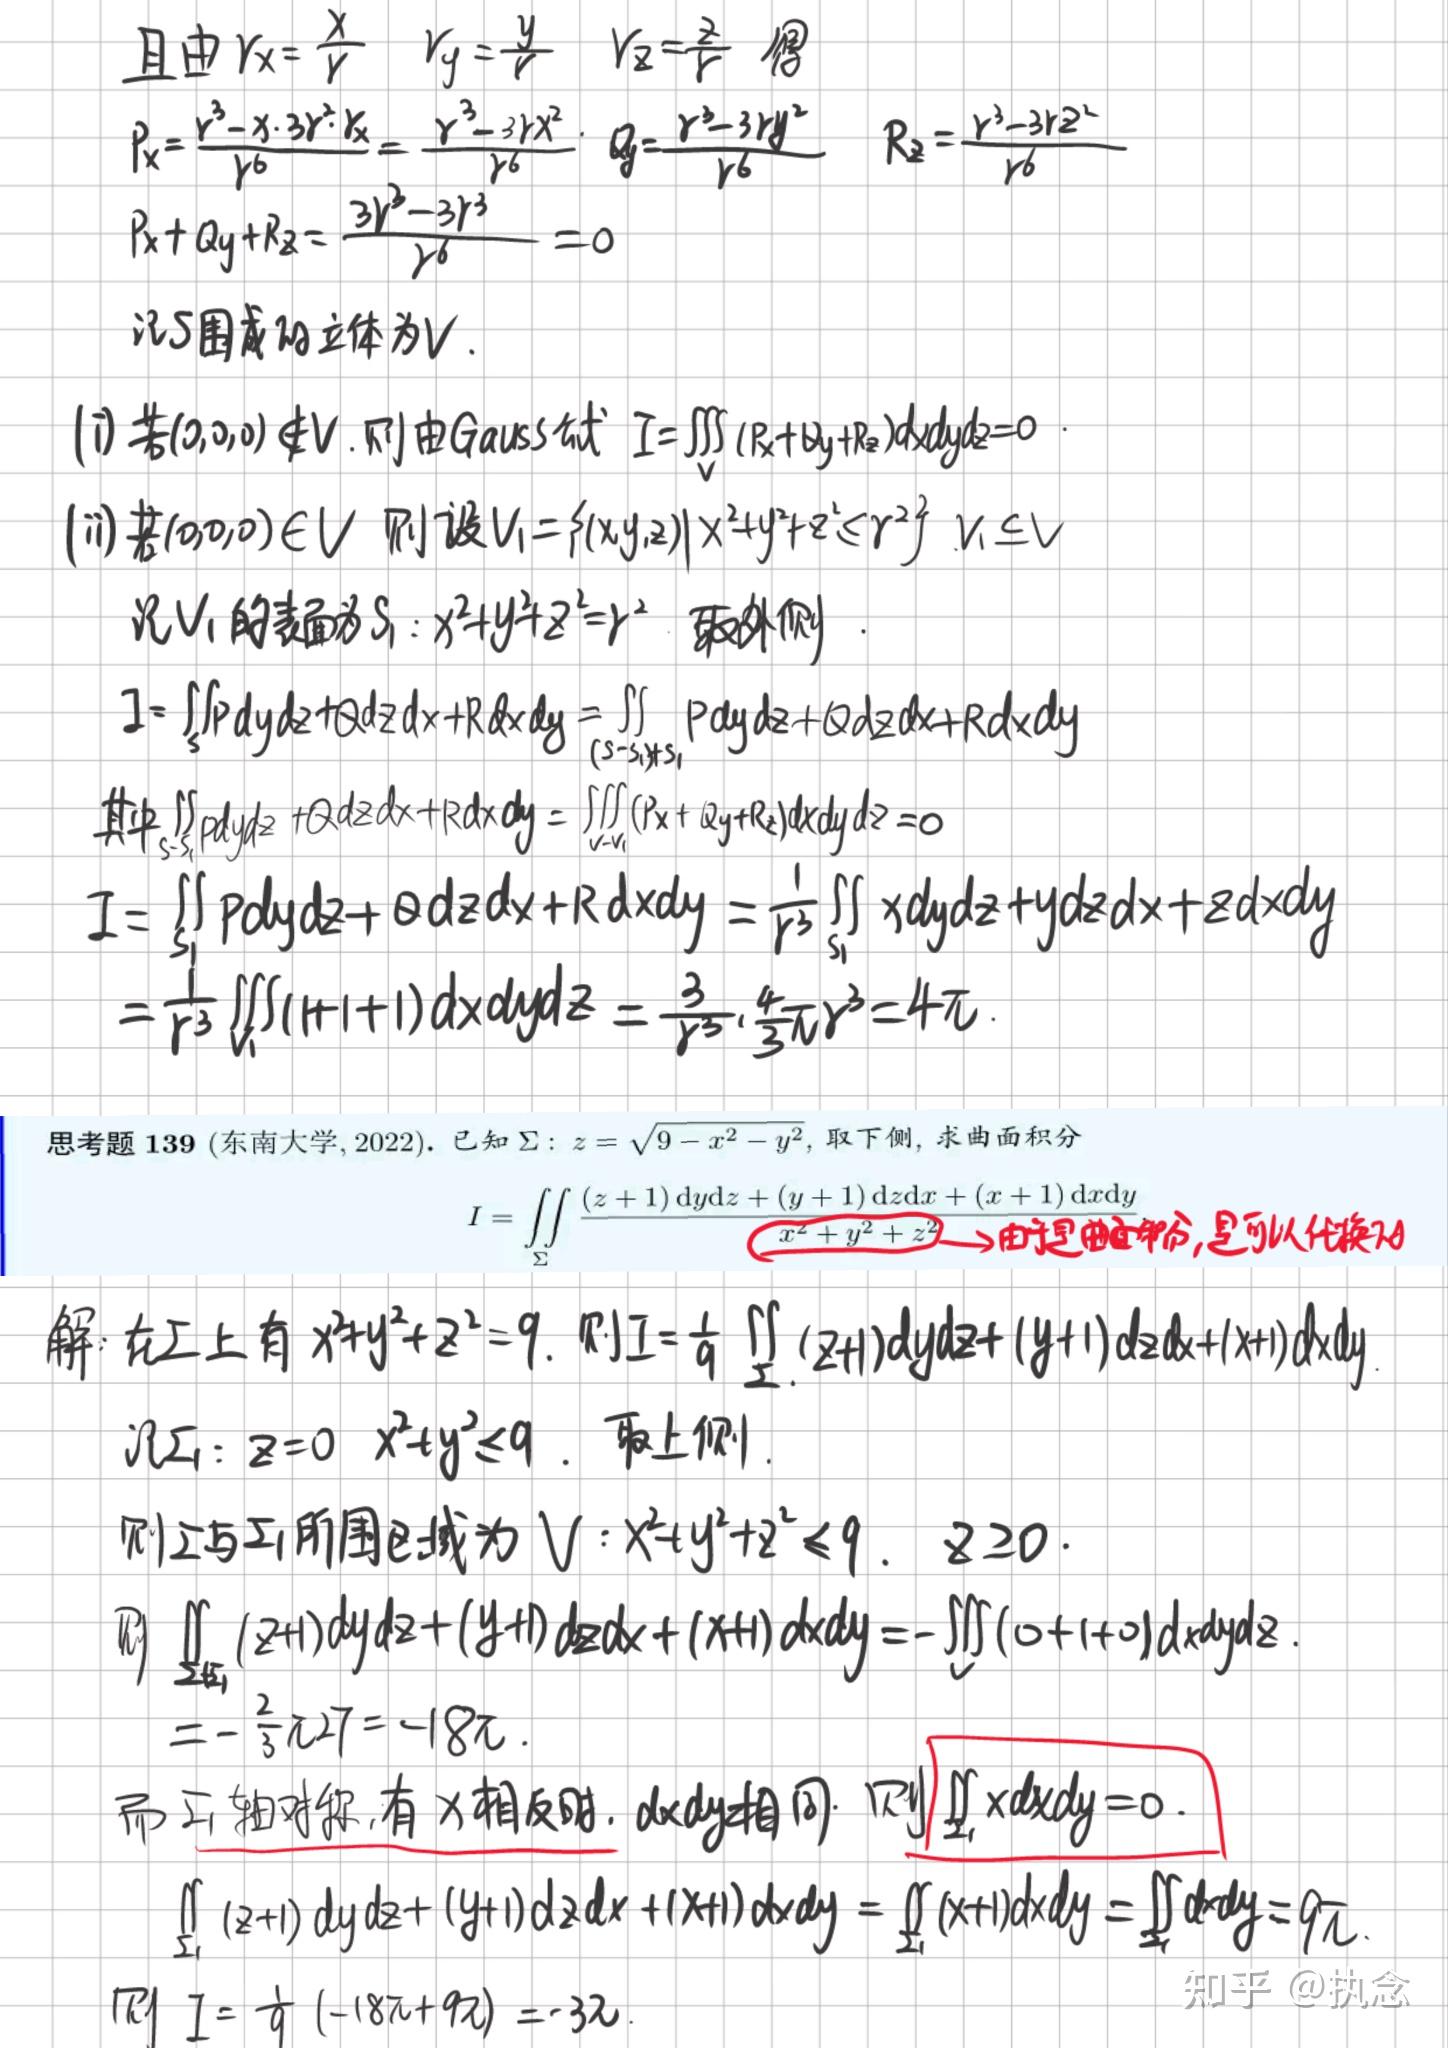 且由 rₓ=x/r  r_y=y/r  r_z=z/r 得
Pₓ=(r³-x·3r²·rₓ)/r⁶=(r³-3rx²)/r⁶. Q_y=(r³-3ry²)/r⁶  R_z=(r³-3rz²)/r⁶
Pₓ+Q_y+R_z=(3r³-3r³)/r⁶=0
记S围成的立体为V.
(i) 若(0,0,0)∉V.则由Gauss公式 I=∭_V (Pₓ+Q_y+R_z)dxdydz=0.
(ii) 若(0,0,0)∈V 则设V₁={(x,y,z)|x²+y²+z²≤r²}.V₁⊆V
记V₁的表面为S₁:x²+y²+z²=r². 取外侧.
I=∬_S Pdydz+Qdzdx+Rdxdy=∬_{(S-S₁)+S₁} Pdydz+Qdzdx+Rdxdy
其中∬_{S-S₁} Pdydz+Qdzdx+Rdxdy=∭_{V-V₁}(Pₓ+Q_y+R_z)dxdydz=0
I=∬_{S₁} Pdydz+Qdzdx+Rdxdy=1/r³ ∬_{S₁} xdydz+ydzdx+zdxdy
=1/r³ ∭_{V₁}(1+1+1)dxdydz=3/r³·4/3πr³=4π.
思考题 139 (东南大学, 2022). 已知 Σ: z = √(9 − x² − y²), 取下侧, 求曲面积分
I = ∬_Σ ((z + 1) dydz + (y + 1) dzdx + (x + 1) dxdy)/(x² + y² + z²)
→由于是曲面部分,是可以代换的
解:在Σ上有 x²+y²+z²=9. 则I=1/9 ∬_Σ (z+1)dydz+(y+1)dzdx+(x+1)dxdy.
记Σ₁:z=0 x²+y²≤9. 取上侧.
则Σ与Σ₁所围区域为 V:x²+y²+z²≤9. z≥0.
则 ∬_{Σ+Σ₁} (z+1)dydz+(y+1)dzdx+(x+1)dxdy=-∭_V(0+1+0)dxdydz.
=-2/3π27=-18π.
而Σ₁轴对称,有x相反时. dxdy相同. 则∬_{Σ₁} xdxdy=0.
∬_{Σ₁} (z+1)dydz+(y+1)dzdx+(x+1)dxdy=∬_{Σ₁}(x+1)dxdy=∬_{Σ₁}dxdy=9π.
则 I=1/9 (-18π+9π)=-3π.
知乎 @执念